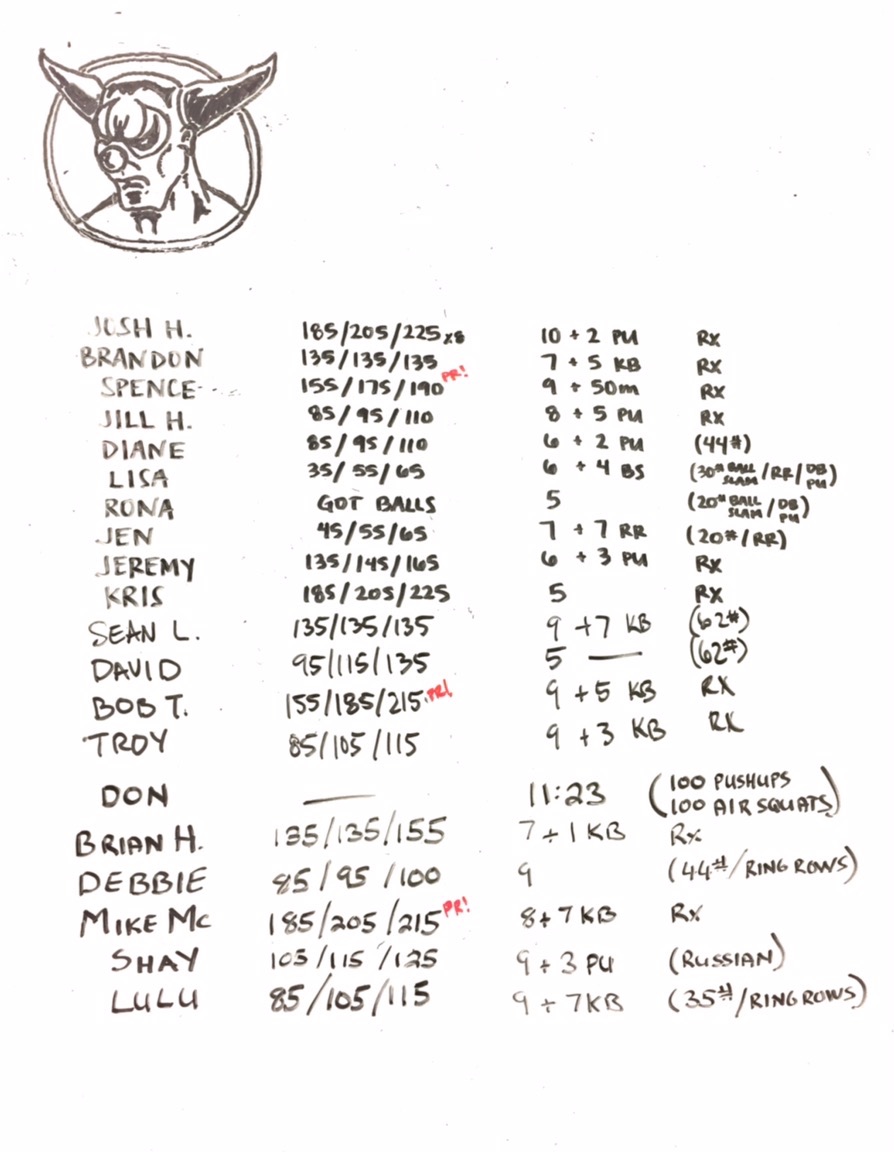 JOSH H. 185/205/225 x8 10 + 2 PU Rx
BRANDON 135/135/135 7 + 5 KB Rx
SPENCE 155/175/190 PR! 9 + 50m Rx
JILL H. 85/95/110 8 + 5 PU Rx
DIANE 85/95/110 6 + 2 PU (44#)
LISA 35/55/65 6 + 4 BS (30# BALL SLAM/RR/DB PU)
RONA GOT BALLS 5 (20# BALL SLAM/DB PU)
JEN 45/55/65 7 + 7 RR (20#/RR)
JEREMY 135/145/165 6 + 3 PU Rx
KRIS 185/205/225 5 Rx
SEAN L. 135/135/135 9 +7 KB (62#)
DAVID 95/115/135 5 — (62#)
BOB T. 155/185/215 PR! 9 +5 KB RX
TROY 85/105/115 9 +3 KB RX
DON — 11:23 (100 PUSHUPS
100 AIR SQUATS)
BRIAN H. 135/135/155 7 + 1 KB Rx
DEBBIE 85/95/100 9 (44#/RING ROWS)
MIKE MC 185/205/215 PR! 8+7KB Rx
SHAY 105/115/125 9 + 3 PU (RUSSIAN)
LULU 85/105/115 9 + 7KB (35#/RING ROWS)